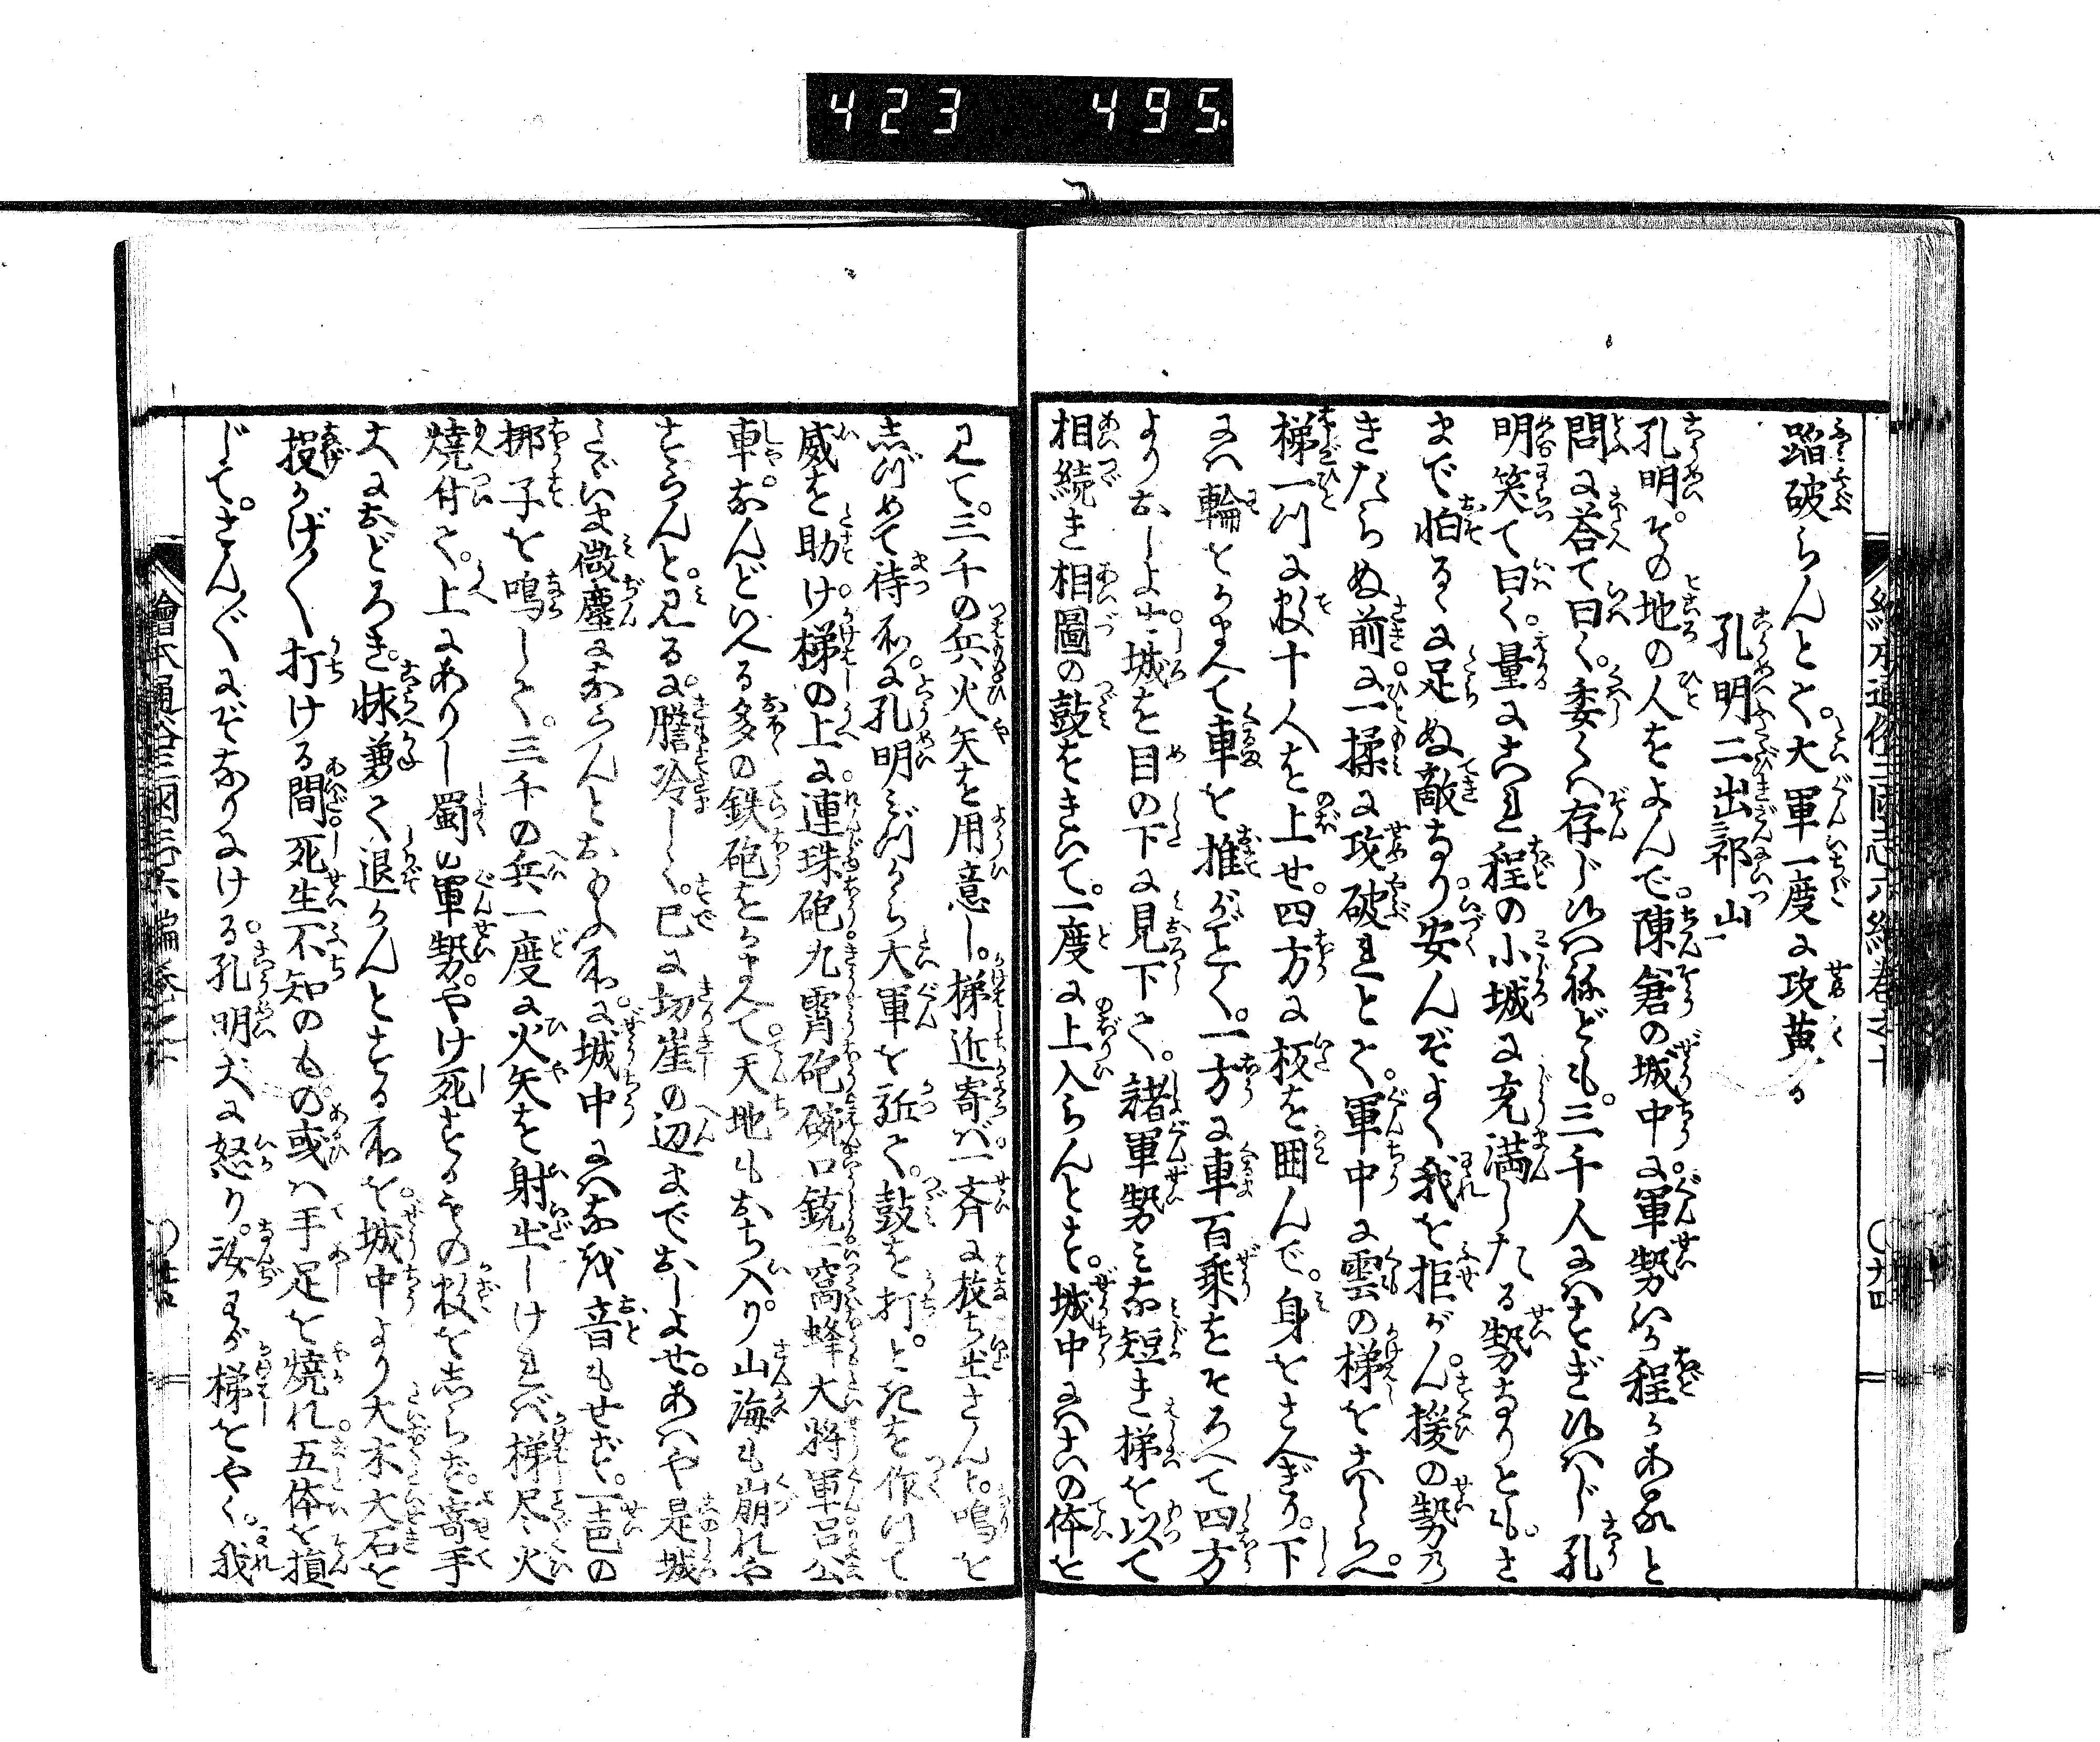 423 495.
蹈破らんとて。大軍一度に攻蒐る
孔明二出祁山一
孔明。その地の人をよんで。陳倉の城中に軍勢いか程かあると
問に答て曰く。委くは存じ候はねども。三千人にはすぎ候はじ孔
明笑て曰く。量にこれ程の小城に充満したる勢なりとも。さ
まで怕るゝに足ぬ敵なり。安んぞよく我を拒がん。援の勢の
きたらぬ前に。一揉に攻破れとて。軍中に雲の梯をこしらへ。
梯一つに数十人を上せ。四方に板を囲んで。身をさへぎり。下
には輪をかまへて車を推がごとく。一方に車百乗をそろへて四方
よりおしよせ。城を目の下に見下して。諸軍勢みな短き梯を以て
相続き相圖の鼓をきいて。一度に上入らんとす。城中にはこの体を
見て。三千の兵火矢を用意し。梯近寄ば。一斉に放ち出さんと。鳴を
しづめて待所に。孔明みづから大軍を近て。鼓を打。ときを作つて
威を助け。梯の上に。連珠砲九霄砲碗口銃一窩蜂大将軍呂公
車。なんどいへる多の鉄砲をかまへて。天地もおち入り。山海も崩れや
すらんと。見るに。膽冷しく。已に切崖の辺までおしよせ。あはや是城
こゞいま微塵にならんとおもふ所に。城中にはなを音もせず。一声の
梆子を鳴しく。三千の兵一度に火矢を射出しければ梯尽く火
焼付て。上にありし蜀の軍勢。やけ死するもの数をしらず。寄手
大におどろき。怺兼て退かんとする所を。城中より大木大石を
投かけ〱打ける間。死生不知のもの。或は手足を焼れ。五体を損
じて。さん〲にぞなりにける。孔明大に怒り。汝わが梯をやく。我
繪本通俗三國志六編巻之十 〇十四
繪本通俗三國志六編巻之十